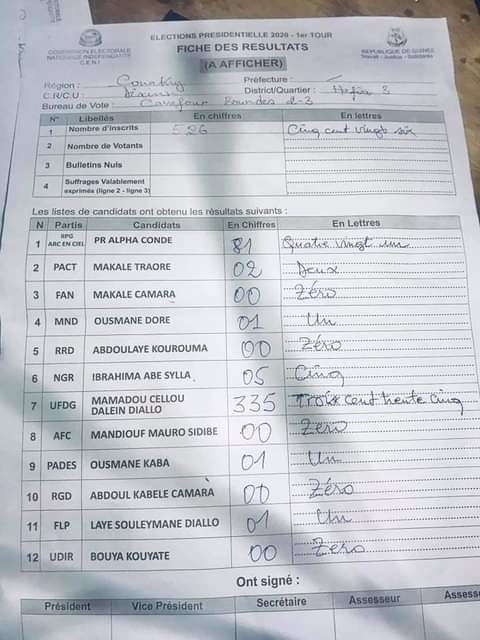 ELECTIONS PRESIDENTIELLE 2020 - 1er TOUR
COMMISSION ELECTORALE NATIONALE INDEPENDANTE
C.E.N.I
FICHE DES RESULTATS
(A AFFICHER)
REPUBLIQUE DE GUINEE
Travail - Justice - Solidarité
Région : Conakry Préfecture :
C.R/C.U : Dixinn District/Quartier : Hafia 3
Bureau de Vote : Carrefour 2-3
N° Libellés En chiffres En lettres
1 Nombre d'inscrits 526 Cinq cent vingt six
2 Nombre de Votants
3 Bulletins Nuls
4 Suffrages Valablement exprimés (ligne 2 - ligne 3)
Les listes de candidats ont obtenu les résultats suivants :
N Partis Candidats En Chiffres En Lettres
1 RPG ARC EN CIEL PR ALPHA CONDE 81 Quatre vingt un
2 PACT MAKALE TRAORE 02 Deux
3 FAN MAKALE CAMARA 00 Zéro
4 MND OUSMANE DORE 01 Un
5 RRD ABDOULAYE KOUROUMA 00 Zéro
6 NGR IBRAHIMA ABE SYLLA 05 Cinq
7 UFDG MAMADOU CELLOU DALEIN DIALLO 335 Trois cent trente cinq
8 AFC MANDIOUF MAURO SIDIBE 00 Zero
9 PADES OUSMANE KABA 01 Un
10 RGD ABDOUL KABELE CAMARA 00 Zéro
11 FLP LAYE SOULEYMANE DIALLO 01 Un
12 UDIR BOUYA KOUYATE 00 Zero
Ont signé :
Président Vice Président Secrétaire Assesseur Assess